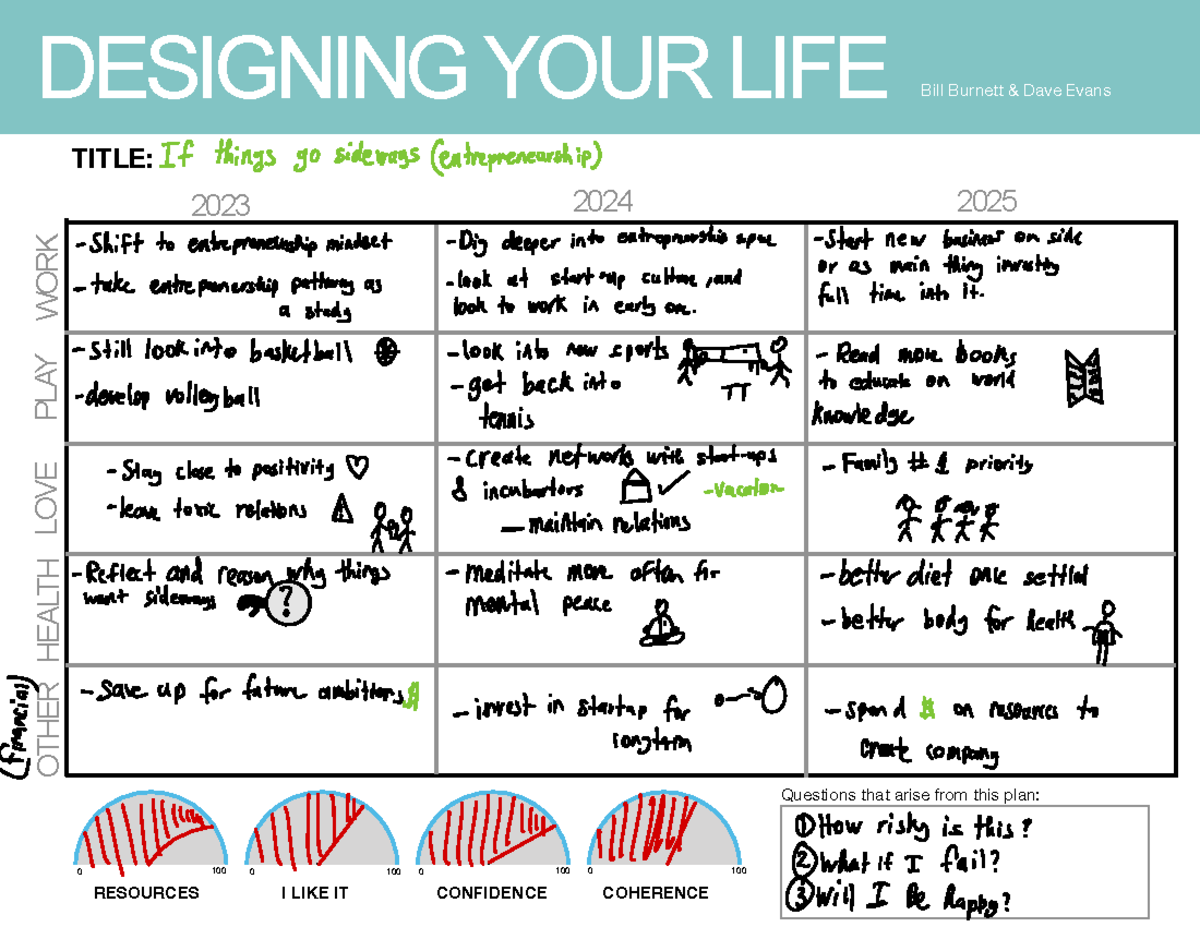 DESIGNING YOUR LIFE
Bill Burnett & Dave Evans
TITLE: If things go sideways (entrepreneurship)
2023 2024 2025
WORK
-Shift to entrepreneurship mindset
-take entrepreneurship pathway as
a study
-Dig deeper into entrepreneurship space
-look at start-up culture, and
look to work in early on.
-Start new business on side
or as main thing investing
full time into it.
PLAY
-Still look into basketball
-develop volleyball
-look into new sports
-get back into
tennis
-Read more books
to educate on world
knowledge
LOVE
-Stay close to positivity
-leave toxic relations
-create networks with start-ups
& incubators
-Vacation
-maintain relations
-Family #1 priority
HEALTH
-Reflect and reason why things
went sideways
?
-Meditate more often for
mental peace
-better diet once settled
-better body for health
OTHER
(financial)
-Save up for future ambitions $
-invest in startup for
longterm
-spend $ on resources to
create company
0 100
RESOURCES
0 100
I LIKE IT
0 100
CONFIDENCE
0 100
COHERENCE
Questions that arise from this plan:
① How risky is this?
② What if I fail?
③ Will I be happy?